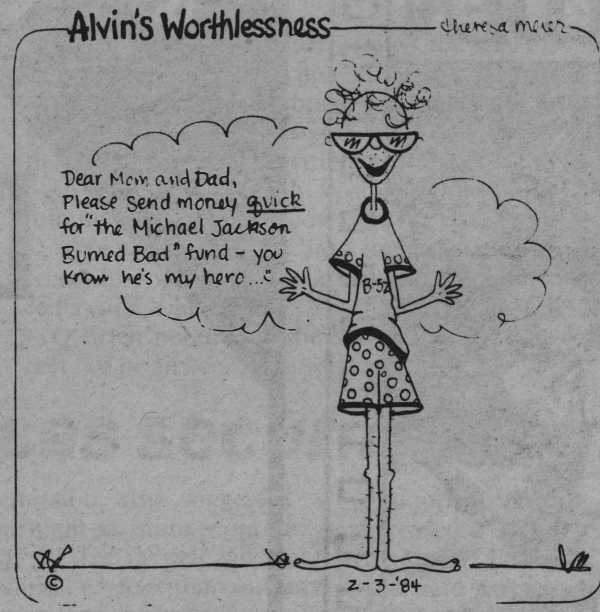 Alvin's Worthlessness
theresa meier
Dear Mom and Dad,
Please send money quick
for "the Michael Jackson
Burned Bad" fund – you
know he's my hero ..."
B-52
©
2-3-'84